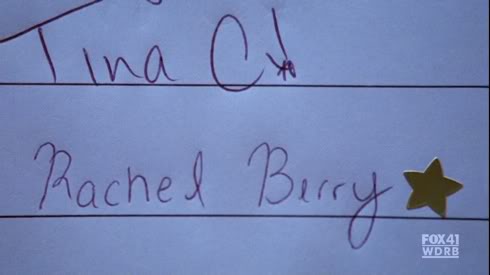 Tina C!
Rachel Berry
FOX41
WDRB